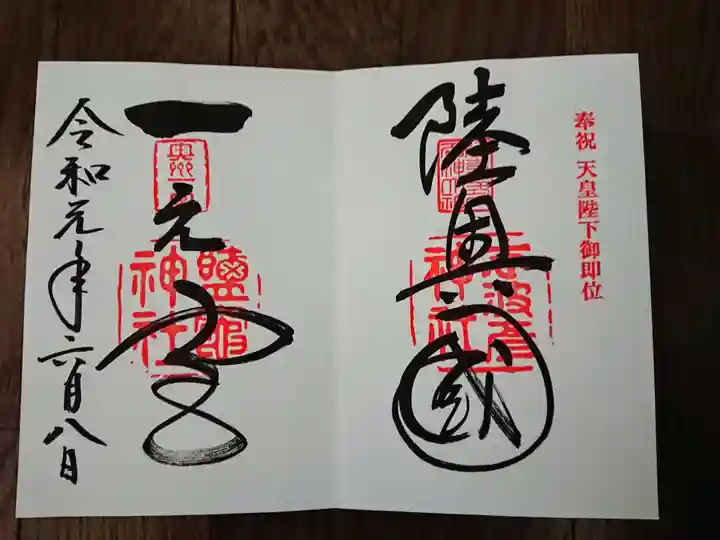 奉祝 天皇陛下御即位
陸奥國
志波彦神社
一之宮
奥州一宮
鹽竈神社
令和元年六月八日